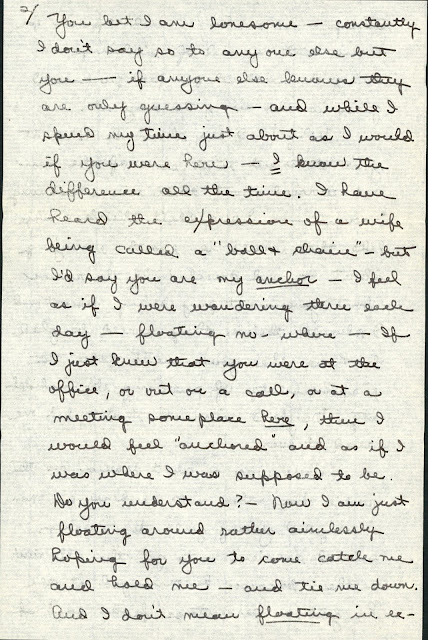 2/ You bet I am lonesome — constantly
I don't say so to any one else but
you — if anyone else knows they
are only guessing — and while I
spend my time just about as I would
if you were here — I know the
difference all the time. I have
heard the expression of a wife
being called a "ball & chain" — but
I'd say you are my anchor — I feel
as if I were wandering thru each
day — floating no-where — If
I just knew that you were at the
office, or out on a call, or at a
meeting someplace here, then I
would feel "anchored" and as if I
was where I was supposed to be.
Do you understand? — Now I am just
floating around rather aimlessly
hoping for you to come catch me
and hold me — and tie me down.
And I don't mean floating in ec-